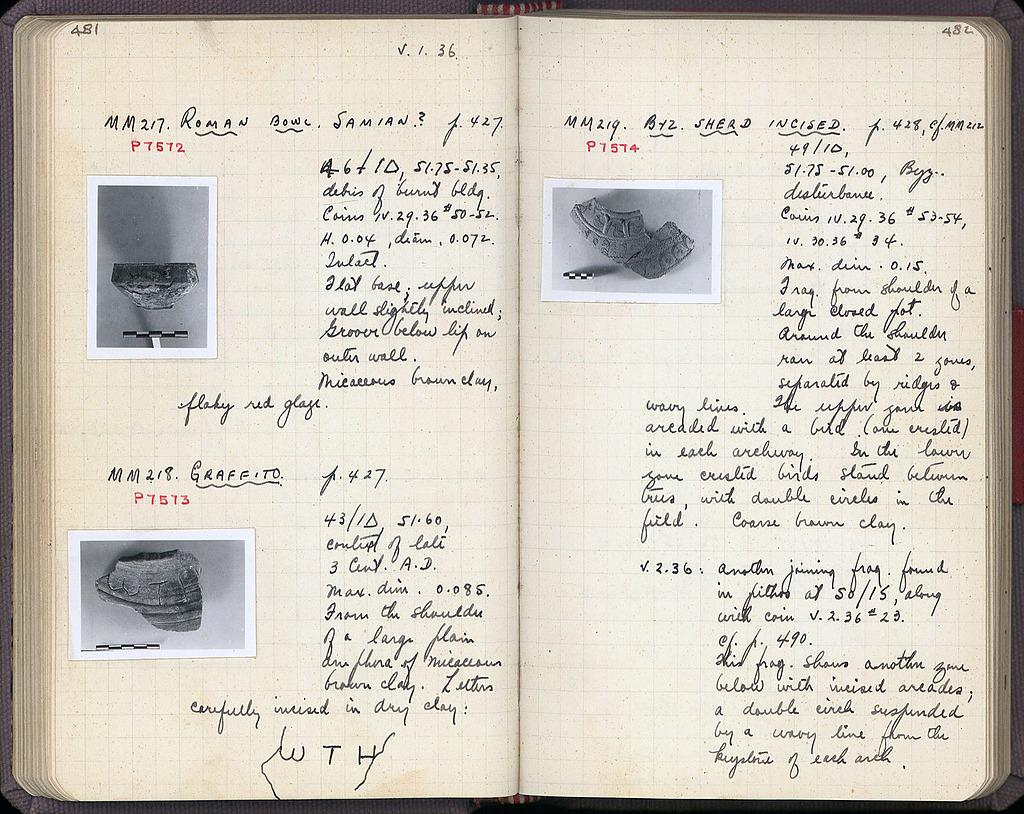 481
V. 1. 36
MM217. ROMAN BOWL. SAMIAN? p. 427.
P7572
46/ΙΔ, 51.75-51.35,
debris of burnt bldg.
Coins IV.29.36 #50-52.
H. 0.04, diam. 0.072.
Intact.
Flat base; upper
wall slightly inclined;
Groove below lip on
outer wall.
Micaceous brown clay,
flaky red glaze.
MM218. GRAFFITO. p. 427.
P7573
43/ΙΔ, 51.60,
context of late
3 Cent. A.D.
Max. dim. 0.085.
From the shoulder
of a large plain
amphora of micaceous
brown clay. Letters
carefully incised in dry clay:
W T H
482
MM219. BYZ. SHERD INCISED. p. 428, cf. MM212
P7574
49/ΙΔ,
51.75-51.00, Byz.
disturbance.
Coins IV.29.36 #53-54,
IV.30.36 # 34.
Max. dim. 0.15.
Frag. from shoulder of a
large closed pot.
Around the shoulder
ran at least 2 zones,
separated by ridges &
wavy lines. The upper zone is
arcaded with a bird (one crested)
in each archway. In the lower
zone crested birds stand between
trees, with double circles in the
field. Coarse brown clay.
V.2.36: Another joining frag. found
in pithos at 50/15, along
with coin V.2.36 #23.
cf. p. 490.
This frag. shows another zone
below with incised arcades;
a double circle suspended
by a wavy line from the
keystone of each arch.